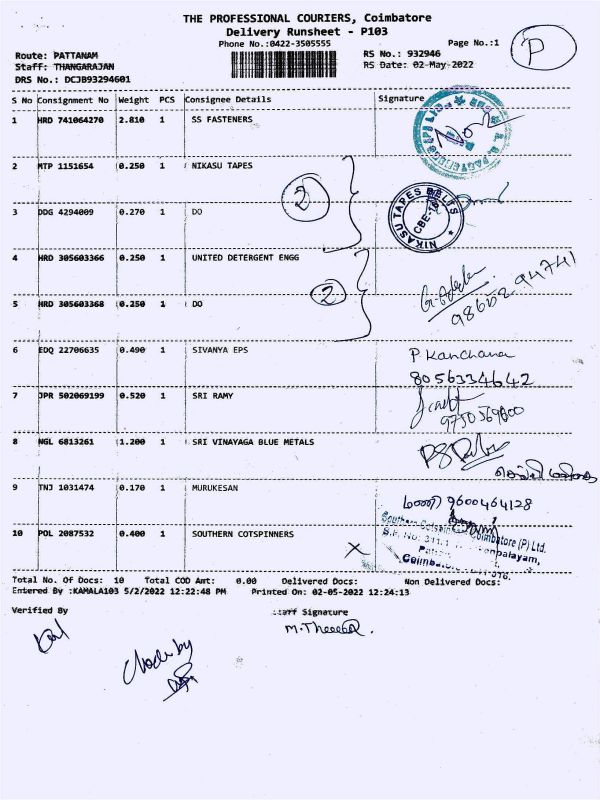 THE PROFESSIONAL COURIERS, Coimbatore
Delivery Runsheet - P103
Phone No.:0422-3505555
Page No.:1
P
Route: PATTANAM
RS No.: 932946
Staff: THANGARAJAN
RS Date: 02-May-2022
DRS No.: DCJB93294601
S No Consignment No Weight PCS Consignee Details Signature
1 HRD 741064270 2.810 1 SS FASTENERS
2 MTP 1151654 0.250 1 NIKASU TAPES
2
3 DDG 4294009 0.270 1 DO
NIKASU TAPES BELTS
CBE-18
4 HRD 305603366 0.250 1 UNITED DETERGENT ENGG
98602 94741
2
5 HRD 305603368 0.250 1 DO
6 EDQ 22706635 0.490 1 SIVANYA EPS
P Kanchana
8056334642
7 JPR 502069199 0.520 1 SRI RAMY
9750569800
8 NGL 6813261 1.200 1 SRI VINAYAGA BLUE METALS
9 TNJ 1031474 0.170 1 MURUKESAN
மணி 9600464128
10 POL 2087532 0.400 1 SOUTHERN COTSPINNERS
X
Southern Cotspin Coimbatore (P) Ltd.
S.F. No. 311.1
Total No. Of Docs: 10 Total COD Amt: 0.00 Delivered Docs: Non Delivered Docs:
Entered By :KAMALA103 5/2/2022 12:22:48 PM Printed On: 02-05-2022 12:24:13
Verified By
Staff Signature